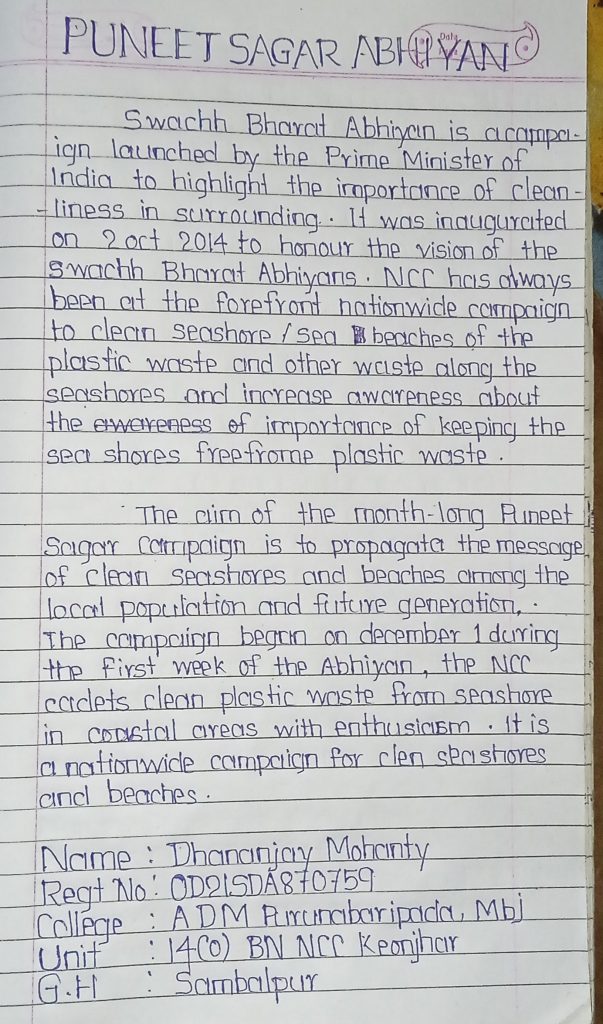 PUNEET SAGAR ABHIYAN
Swachh Bharat Abhiyan is a campa-
ign launched by the Prime Minister of
India to highlight the importance of clean-
-liness in surrounding. It was inaugurated
on 2 oct 2014 to honour the vision of the
Swachh Bharat Abhiyans. NCC has always
been at the forefront nationwide campaign
to clean seashore / sea beaches of the
plastic waste and other waste along the
seashores and increase awareness about
the awareness of importance of keeping the
sea shores freefrome plastic waste.
The aim of the month-long Puneet
Sagar Campaign is to propagata the message
of clean seashores and beaches among the
local population and future generation,.
The campaign began on december 1 during
the first week of the Abhiyan, the NCC
cadets clean plastic waste from seashore
in coastal areas with enthusiasm. It is
a nationwide campaign for clen seashores
and beaches.
Name : Dhananjay Mohanty
Regt No: OD21SDA870759
College : ADM Purunabaripada, Mbj
Unit : 14(O) BN NCC Keonjhar
G.H : Sambalpur